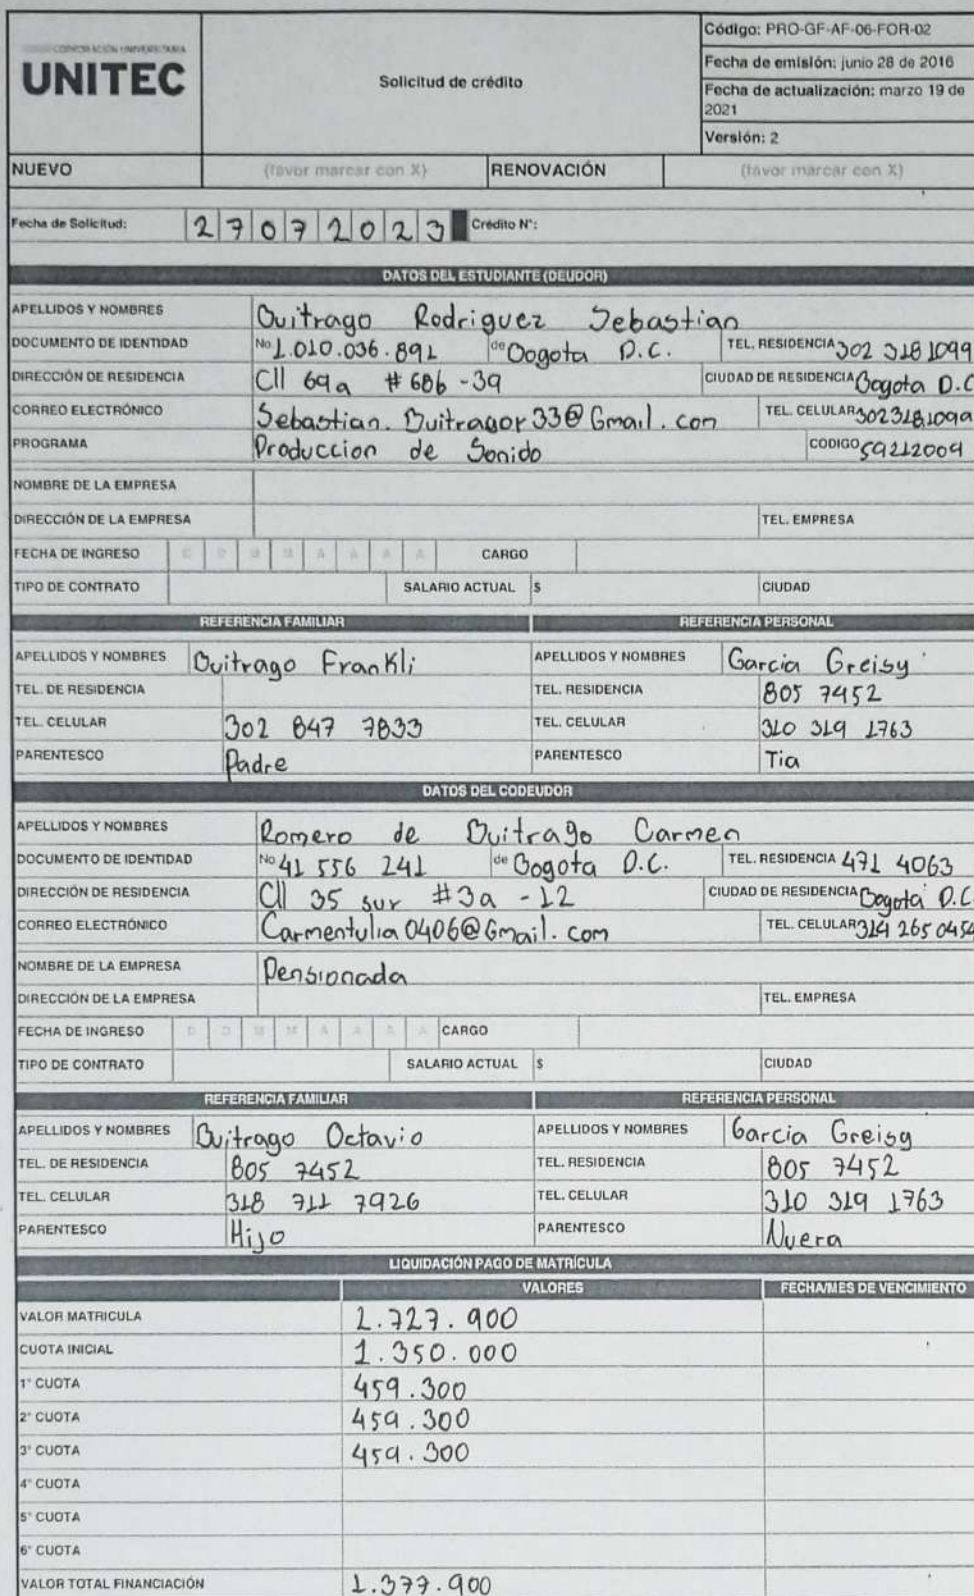 CORPORACIÓN UNIVERSITARIA
UNITEC
Solicitud de crédito
Código: PRO-GF-AF-06-FOR-02
Fecha de emisión: junio 28 de 2016
Fecha de actualización: marzo 19 de
2021
Versión: 2
NUEVO (favor marcar con X) RENOVACIÓN (favor marcar con X)
Fecha de Solicitud: 2 7 0 7 2 0 2 3 Crédito N°:
DATOS DEL ESTUDIANTE (DEUDOR)
APELLIDOS Y NOMBRES Buitrago Rodriguez Sebastian
DOCUMENTO DE IDENTIDAD No 1.010.036.891 de Bogota D.C. TEL. RESIDENCIA 302 318 1099
DIRECCIÓN DE RESIDENCIA Cll 69a # 68b - 39 CIUDAD DE RESIDENCIA Bogota D.C
CORREO ELECTRÓNICO Sebastian.Buitragor33@Gmail.com TEL. CELULAR 3023181099
PROGRAMA Produccion de Sonido CODIGO 59212009
NOMBRE DE LA EMPRESA
DIRECCIÓN DE LA EMPRESA TEL. EMPRESA
FECHA DE INGRESO D D M M A A A A CARGO
TIPO DE CONTRATO SALARIO ACTUAL $ CIUDAD
REFERENCIA FAMILIAR REFERENCIA PERSONAL
APELLIDOS Y NOMBRES Buitrago Frankli APELLIDOS Y NOMBRES Garcia Greisy
TEL. DE RESIDENCIA TEL. RESIDENCIA 805 7452
TEL. CELULAR 302 847 7833 TEL. CELULAR 310 319 1763
PARENTESCO Padre PARENTESCO Tia
DATOS DEL CODEUDOR
APELLIDOS Y NOMBRES Romero de Buitrago Carmen
DOCUMENTO DE IDENTIDAD No 41 556 241 de Bogota D.C. TEL. RESIDENCIA 471 4063
DIRECCIÓN DE RESIDENCIA Cll 35 sur #3a - 12 CIUDAD DE RESIDENCIA Bogota D.C.
CORREO ELECTRÓNICO Carmentulia0406@Gmail.com TEL. CELULAR 314 265 0454
NOMBRE DE LA EMPRESA Pensionada
DIRECCIÓN DE LA EMPRESA TEL. EMPRESA
FECHA DE INGRESO D D M M A A A A CARGO
TIPO DE CONTRATO SALARIO ACTUAL $ CIUDAD
REFERENCIA FAMILIAR REFERENCIA PERSONAL
APELLIDOS Y NOMBRES Buitrago Octavio APELLIDOS Y NOMBRES Garcia Greisy
TEL. DE RESIDENCIA 805 7452 TEL. RESIDENCIA 805 7452
TEL. CELULAR 318 711 7926 TEL. CELULAR 310 319 1763
PARENTESCO Hijo PARENTESCO Nuera
LIQUIDACIÓN PAGO DE MATRÍCULA
VALORES FECHA/MES DE VENCIMIENTO
VALOR MATRICULA 2.727.900
CUOTA INICIAL 1.350.000
1° CUOTA 459.300
2° CUOTA 459.300
3° CUOTA 459.300
4° CUOTA
5° CUOTA
6° CUOTA
VALOR TOTAL FINANCIACIÓN 1.377.900